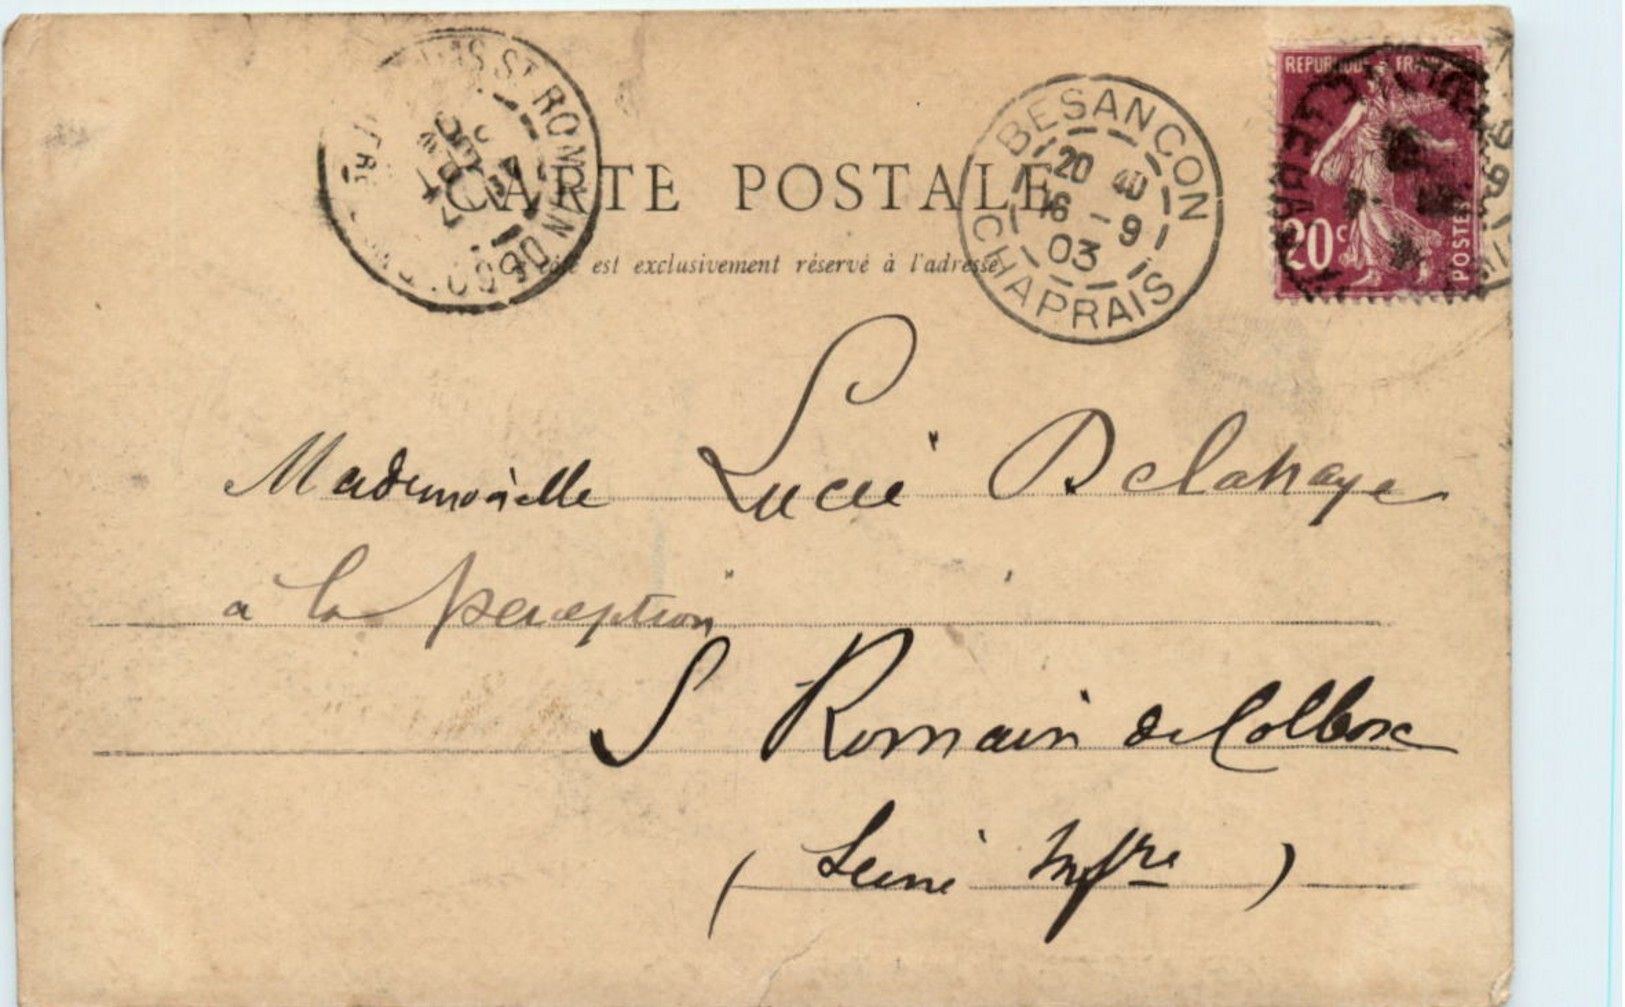 CARTE POSTALE
est exclusivement réservé à l'adresse
ST ROMAIN
BESANCON
20 40
16 - 9
03
CHAPRAIS
REPUBLIQUE FRANCAISE
20c
POSTES
Mademoiselle Lucie Delahaye
a la perception
S Romain de Colbosc
(Seine Infre)